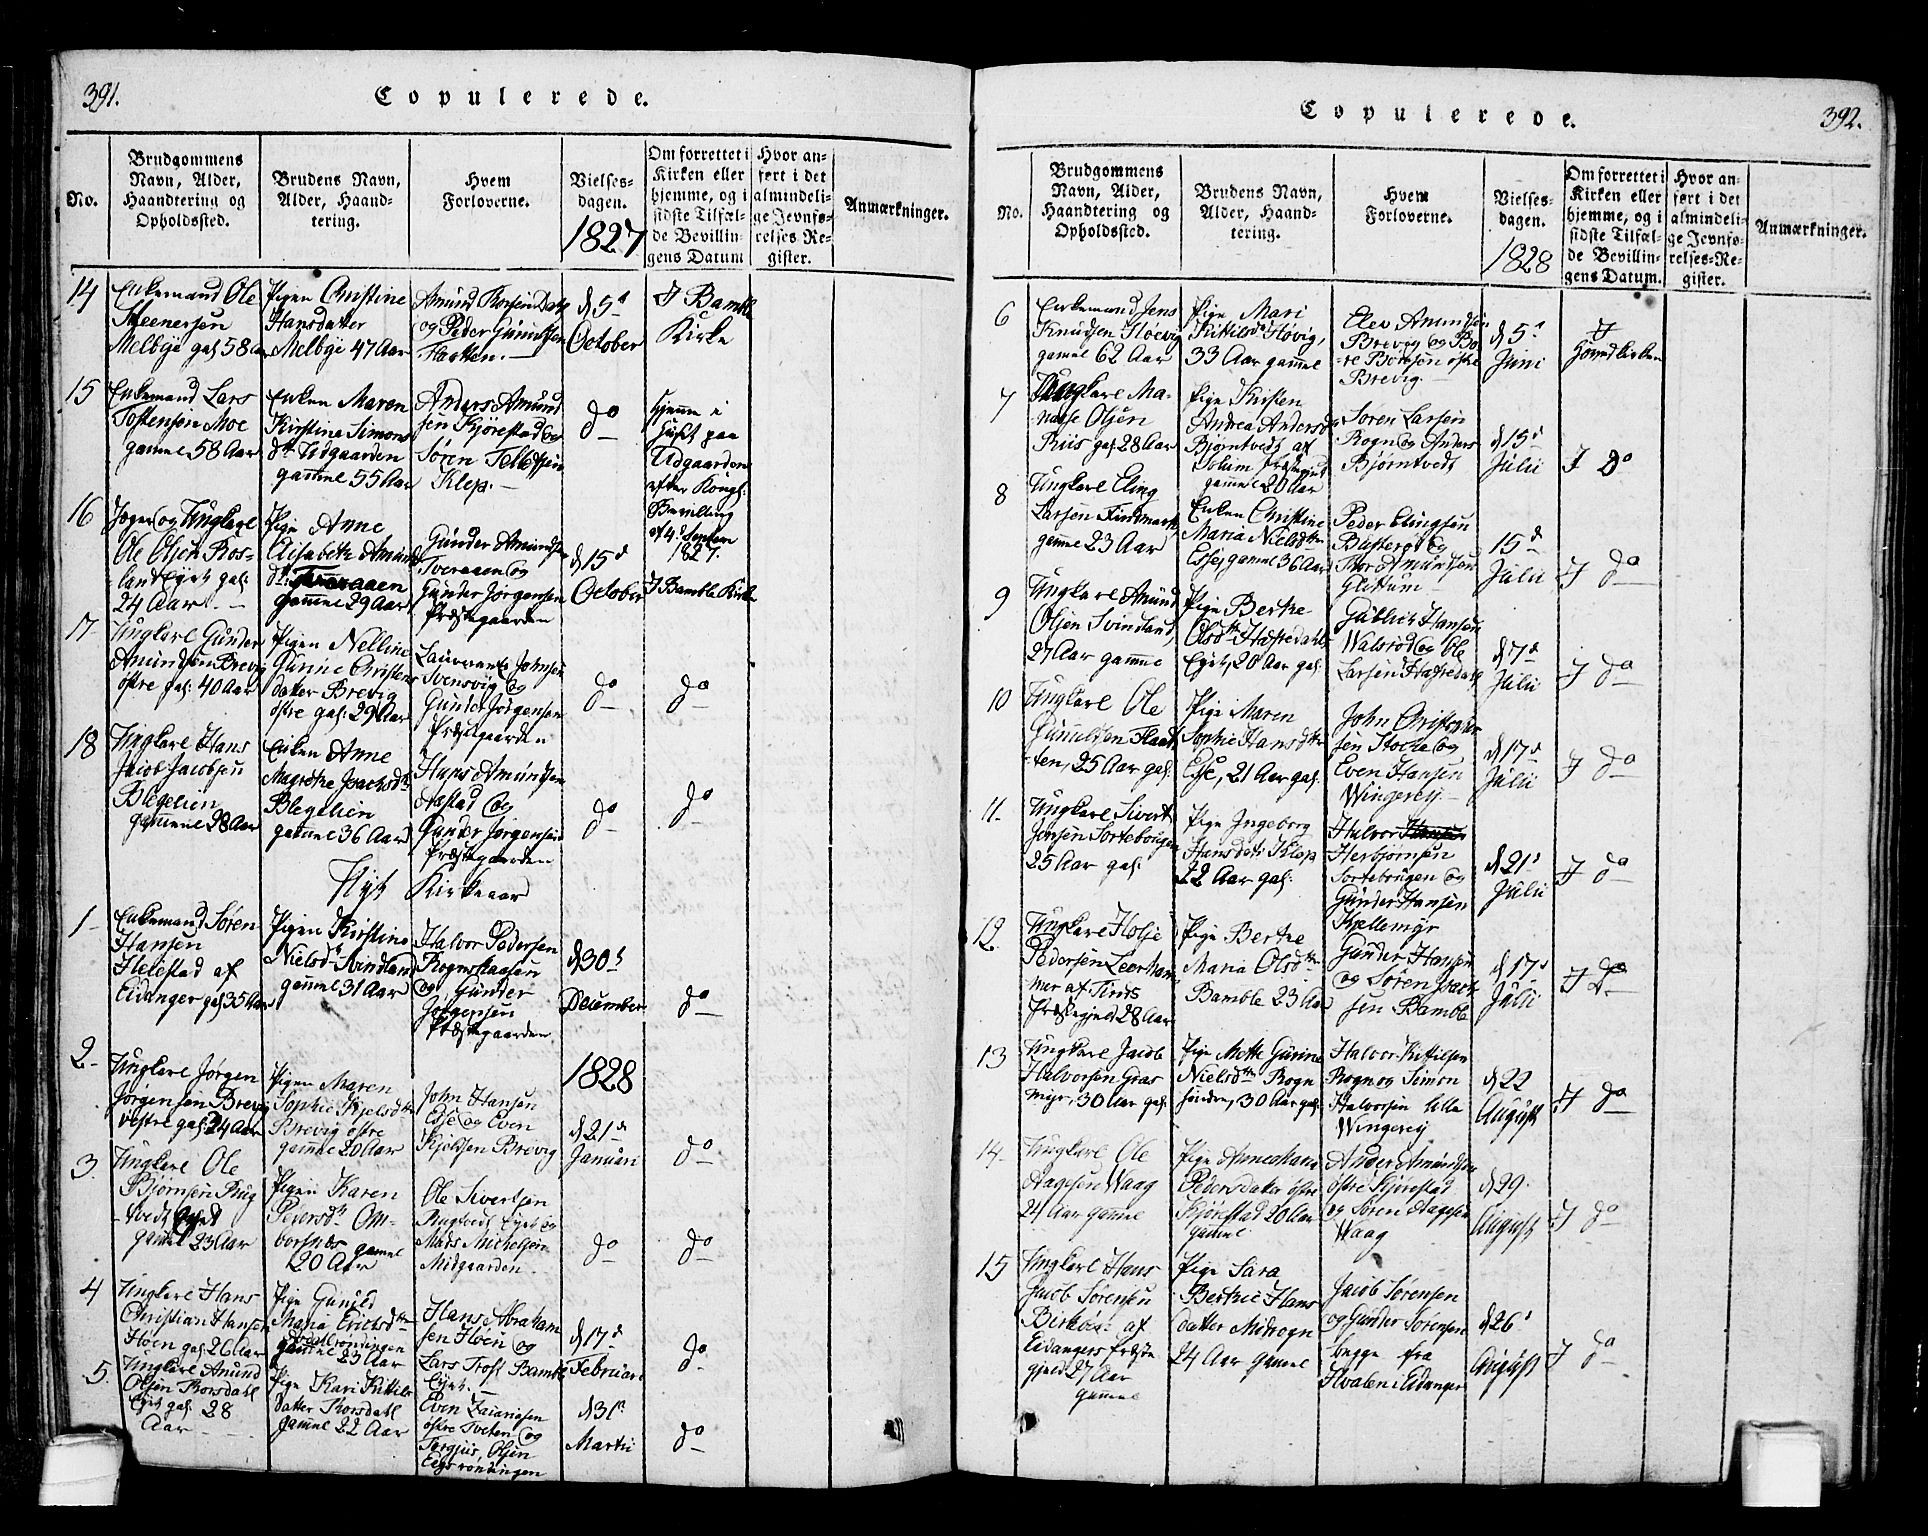 391.
Copulerede.
No.
Brudgommens
Navn, Alder,
Haandtering og
Opholdssted.
Brudens Navn,
Alder, Haand-
tering.
Hvem
Forloverne.
Vielses-
dagen.
1827
Om forrettet i
Kirken eller
hjemme, og i
sidste Tilfæl-
de Bevillin-
gens Datum
Hvor an-
ført i det
almindeli-
ge Jevnfø-
relses Re-
gister.
Anmærkninger.
14
Enkemand Ole
Steenersen
Melbye gal: 58 Aar
Pigen Christine
Hansdatter
Melbye 47 Aar
Amund
og Peder Gunildsen
Flaatten.
d 5t
October
I Bamble
Kirke
15
Enkemand Lars
Tostensen Moe
gamml 58 Aar
Enken Maren
Kirstine Simons
dtr Udgaarden
gamml 55 Aar
Anders Amund
sen Kjørestad og
Søren Tellefsen
Klep.
do
Hjemme i
Huset paa
Udgaarden
efter Kongl:
Bevilling
af 4d Septem
1827.
16
Jæger og Ungkarl
Ole Olsen Ros-
land Eyet gal:
24 Aar
Pige Anne
Elisabeth Amunds
dtr Tveraaen
gamml 29 Aar
Gunder Amundsen
Tveraaen og
Gunder Jørgensen
Præstegaarden
d 15d
October
I Bamble Kirke
17
Ungkarl Gunder
Amundsen Brevig
østre gal: 40 Aar
Pigen Nelline
Gurine Christens
datter Brevig
østre gal: 29 Aar
Johnsen
Svensvig og
Gunder Jørgensen
Præstegaarden
do
do
18
Ungkarl Hans
Jacob Jacobsen
Blegelien
gammel 28 Aar
Enken Anne
Margrethe Isachsdtr
Blegelien
gamml 36 Aar
Hans Amundsen
og
Gunder Jørgensen
Præstegaarden
do
do
Nyt Kirkeaar
1
Enkemand Søren
Hansen
Helestad af
Eidanger gal 35 Aar
Pigen Kirstine
Nielsdtr Svindland
gamml 31 Aar
Halvor Pedersen
og Gunder
Jørgensen
Præstegaarden
d 30t
December
do
2
Ungkarl Jørgen
Jørgensen Brevig
vestre gal: 24 Aar
Pigen Maren
Sophie Kjelsdtr
Brevig østre
gamml 20 Aar
John Hansen
Eſje og Even
Kjeldsen Brevig
1828
d 21d
Januari
do
3
Ungkarl Ole
Bjørnsen Rug
tvedt Eyet
gamml 23 Aar
Pigen Karen
Pedersdtr Om-
borsnæs gamml
20 Aar
Ole Sivertsen
Rugtvedt Eyet og
Mads Michelsen
Midgaarden
do
do
4
Ungkarl Hans
Christian Hansen
Høen gal 26 Aar
Pige Gunild
Maria Erichsdtr
gamml 23 Aar
Hans Abraham
sen Høen og
Lars Trosl Bamble
Eyet.
d 17d
Februari
do
5
Ungkarl Amund
Olsen Rorsdahl
Eyet gal 28
Aar
Pige Kari Kittils
datter Rorsdahl
gamml 22 Aar
Even Zacariasen
østre Tveten og
Torgius Olsen
Eegsrøningen
d 31t
Martii
do
392.
Copulerede.
No.
Brudgommens
Navn, Alder,
Haandtering og
Opholdssted.
Brudens Navn,
Alder, Haand-
tering.
Hvem
Forloverne.
Vielses-
dagen.
1828
Om forrettet i
Kirken eller
hjemme, og i
sidste Tilfæl-
de Bevillin-
gens Datum.
Hvor an-
ført i det
almindeli-
ge Jevnfø-
relses-Re-
gister.
Anmærkninger.
6
Enkemand Jens
Knudsen Høevig
gamml 62 Aar
Pige Mari
Kittilsdr Høvig,
33 Aar gammel
Elev Amundsen
Brevig og Bo-
re Børresen østre
Brevig.
d 5t
Juni
I
Hovedkirken
7
Ungkarl Ma-
nasse Olsen
Riis gal: 28 Aar
Pige Kirsten
Andrea Andersd
Bjørntvedt af
Solum Præstegield
gamml 20 Aar
Søren Larsen
Rogn og Anders
Bjørntvedt
d 15d
Julii
I do
8
Ungkarl Eling
Larsen Findmark
gamml 23 Aar
Enken Christine
Maria Nielsdtr
Eſje, gamml 36 Aar
Peder Elingsen
Busterød og
Thor Amundsen
Glittum
15d
Julii
I do
9
Ungkarl Amund
Olsen Svindland,
27 Aar gamml
Pige Berthe
Olsdtr Hafredahls
Eyet, 20 Aar gal:
Gublich Hansen
Walsrød og Ole
Larsen Hafredahl
d 7d
Julii
I do
10
Ungkarl Ole
Gunildsen Flaat
ten, 25 Aar gal:
Pige Maren
Sophie Hansdtr
Eſje, 21 Aar gal:
John Christopher
sen Stocke og
Even Hansen
Wingerej
d 17d
Julii
I do
11
Ungkarl Sivert
Jensen Sortebougen
25 Aar gal:
Pige Ingeborg
Hansdatr Klep
22 Aar gal:
Halvor
Herbjørnsen
Sortebougen og
Gunder Hansen
Kjellemyr
d 21d
Julii
I do
12
Ungkarl Holje
Pedersen Leerham
mer af Tinds
Præstegjeld 28 Aar
Pige Berthe
Maria Olsdtr
Bamble 23 Aar
Gunder Hansen
og Søren Isach
sen Bamble
d 17d
Julii
I do
13
Ungkarl Jacob
Halvorsen Gras
myr, 30 Aar gal:
Pige Mette Gurine
Nielsdtr Rogn
30 Aar gal:
Halvor Kittilsen
Rogn og Simon
Halvorsen lille
Wingerej
d 22
August
I do
14
Ungkarl Ole
Aagesen Waag
24 Aar gamml
Pige Annemaria
Pedersdatter østre
Kjørestad 20 Aar
gamml
Anders Amundsen
østre Kjørestad
og Søren Aagesen
Waag
d 29
August
I do
15
Ungkarl Hans
Jacob Sørensen
af
Eidangers Præste
gjeld 27 Aar
gamml
Pige Sara
Berthe Hans
datter Midrogn
24 Aar gamml
Jacob Sørensen
og Gunder Sørensen
begge fra
Hvalen i Eidanger
d 26t
August
I do